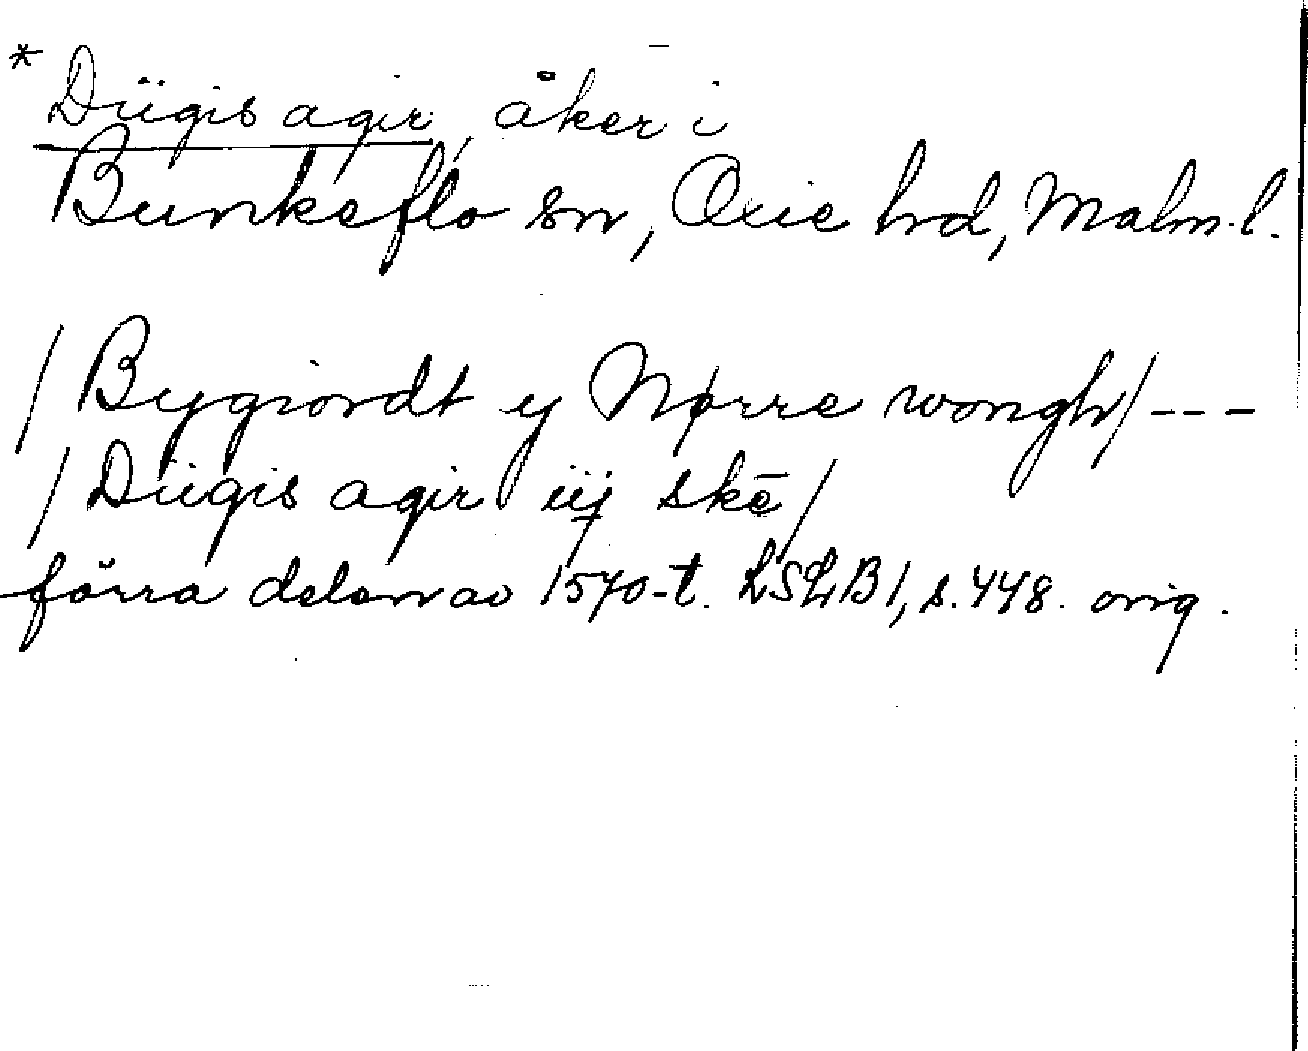 * Diigis agir, åker i
Bunkeflo sn, Oxie hd, Malm. l.
/ Bygiordt y Nørre wongh / ---
/ Diigis agir iij skē /
förra delen av 1570-t. LSLB1, s. 448. orig.